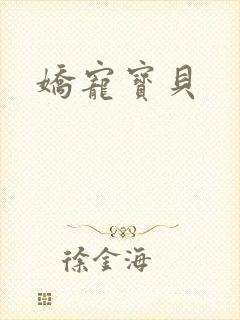 嬌寵寶貝
徐金海